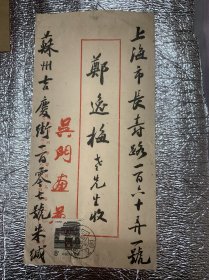 上海市長壽路一百六十弄一號
鄭逸梅老先生收
吳門畫苑
蘇州吉慶街一百零七號朱緘